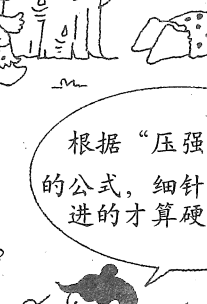 根据“压强
的公式，细针
进的才算硬